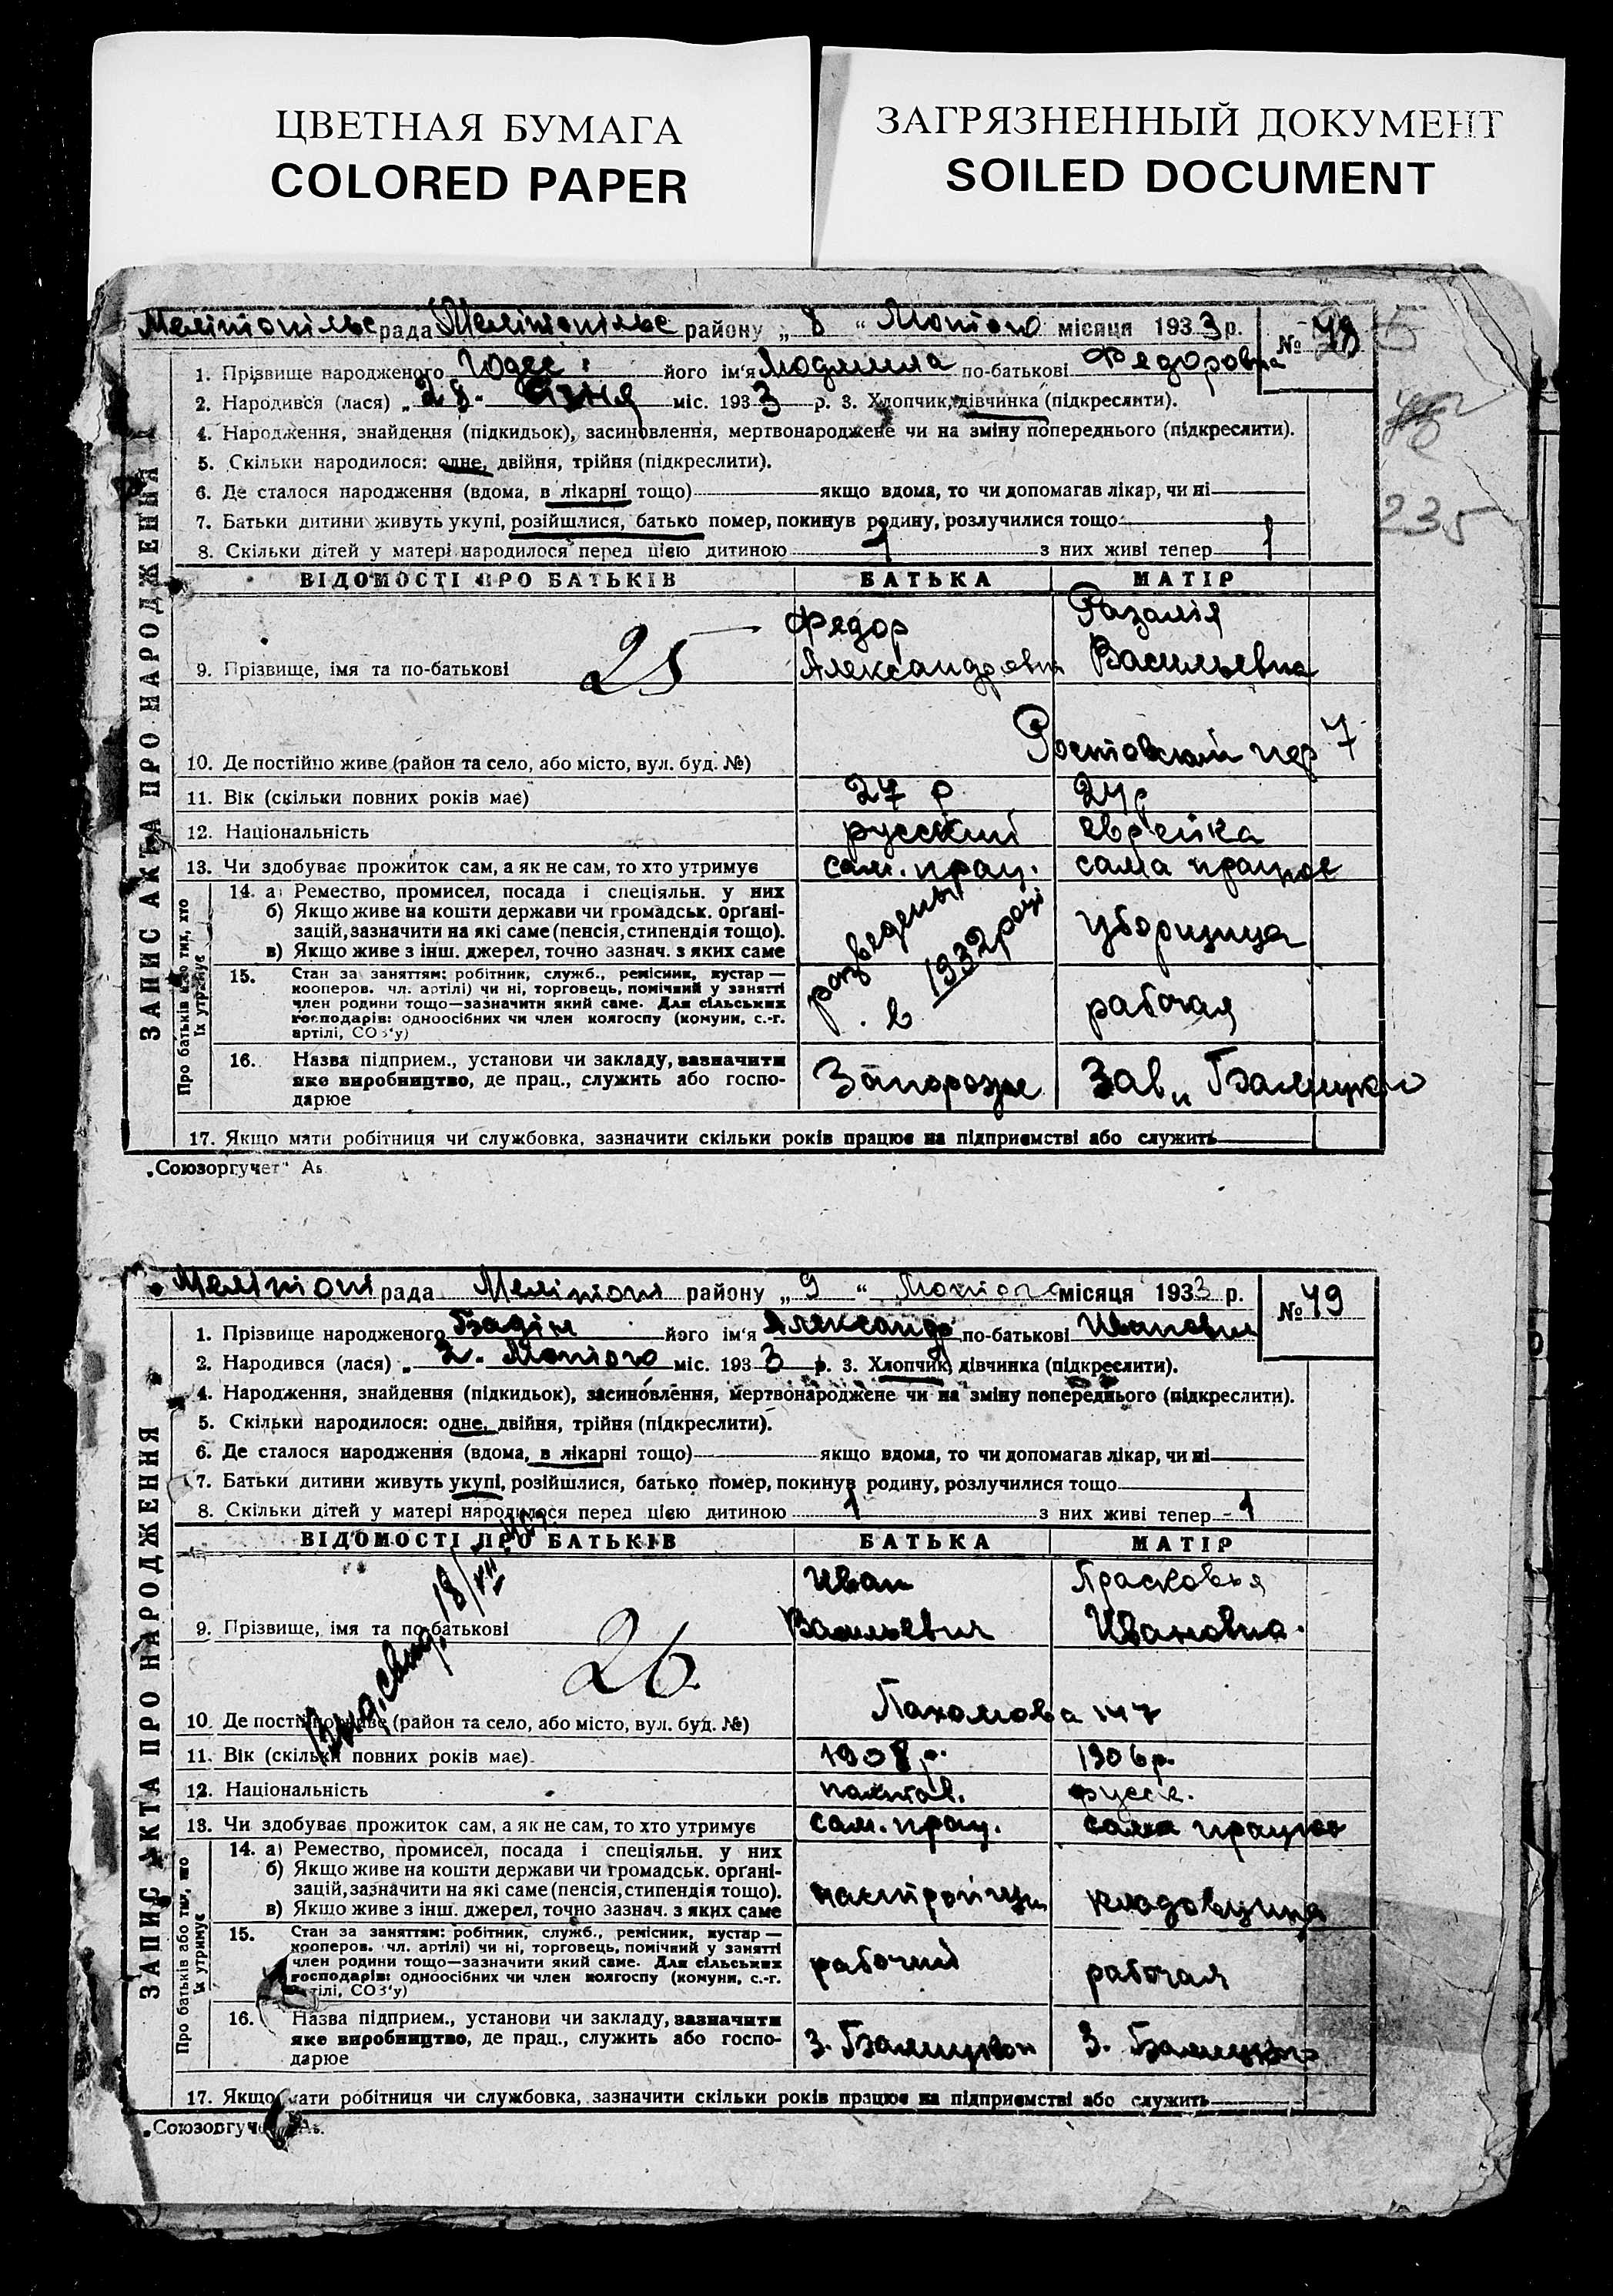 ЦВЕТНАЯ БУМАГА
COLORED PAPER
ЗАГРЯЗНЕННЫЙ ДОКУМЕНТ
SOILED DOCUMENT
Мелітопільс рада Мелітопільс району „ 8 “ Лютого місяця 1933 р. № 48
235
ЗАПИС АКТА ПРО НАРОДЖЕННЯ
1. Прізвище народженого Годес його ім'я Людмила по-батькові Федоровна
2. Народився (лася) „ 28. Січня міс. 1933 р. 3. Хлопчик, дівчинка (підкреслити).
4. Народження, знайдення (підкидьок), засиновлення, мертвонароджене чи на зміну попереднього (підкреслити).
5. Скільки народилося: одне, двійня, трійня (підкреслити).
6. Де сталося народження (вдома, в лікарні тощо) якщо вдома, то чи допомагав лікар, чи ні
7. Батьки дитини живуть укупі, розійшлися, батько помер, покинув родину, розлучилися тощо
8. Скільки дітей у матері народилося перед цією дитиною 1 з них живі тепер 1
ВІДОМОСТІ ПРО БАТЬКІВ БАТЬКА МАТІР
Федор Разалія
9. Прізвище, імя та по-батькові 25 Александрович Васильевна
10. Де постійно живе (район та село, або місто, вул. буд. №) Ростовский пер 7
11. Вік (скільки повних років має) 27 р 24 р
12. Національність русский еврейка
13. Чи здобуває прожиток сам, а як не сам, то хто утримує сам. прац. сама працює
Про батьків або тих, хто їх утримує
14. а) Ремество, промисел, посада і спеціяльн. у них
б) Якщо живе на кошти держави чи громадськ. органі-
зацій, зазначити на які саме (пенсія, стипендія тощо).
в) Якщо живе з інш. джерел, точно зазнач. з яких саме
разведены в 1932 році
уборщица
15. Стан за заняттям: робітник, служб., ремісник, кустар —
кооперов. чл. артілі) чи ні, торговець, помічний у занятті
член родини тощо—зазначити який саме. Для сільських
господарів: одноосібних чи член колгоспу (комуни, с.-г.
артілі, СОЗ'у)
рабочая
16. Назва підприєм., установи чи закладу, зазначити
яке виробництво, де прац., служить або госпо-
дарює
Запорозре Зав. Балицкого
17. Якщо мати робітниця чи службовка, зазначити скільки років працює на підприємстві або служить
„Союзоргучет“ Аь
Мелітоп рада Мелітоп району „ 9 “ Лютого місяця 1933 р. № 49
ЗАПИС АКТА ПРО НАРОДЖЕННЯ
1. Прізвище народженого Бадін його ім'я Александр по-батькові Иванович
2. Народився (лася) „ 2. Лютого міс. 1933 р. 3. Хлопчик, дівчинка (підкреслити).
4. Народження, знайдення (підкидьок), засиновлення, мертвонароджене чи на зміну попереднього (підкреслити).
5. Скільки народилося: одне, двійня, трійня (підкреслити).
6. Де сталося народження (вдома, в лікарні тощо) якщо вдома, то чи допомагав лікар, чи ні
7. Батьки дитини живуть укупі, розійшлися, батько помер, покинув родину, розлучилися тощо
8. Скільки дітей у матері народилося перед цією дитиною 1 з них живі тепер 1
ВІДОМОСТІ ПРО БАТЬКІВ БАТЬКА МАТІР
Иван Прасковья
9. Прізвище, імя та по-батькові 26 Васильевич Ивановна.
10. Де постійно живе (район та село, або місто, вул. буд. №) Пахомова
11. Вік (скільки повних років має) 1908 р. 1906 р.
12. Національність русск.
13. Чи здобуває прожиток сам, а як не сам, то хто утримує сам. прац. сама працює
Про батьків або тих, що їх утримує
14. а) Ремество, промисел, посада і спеціяльн. у них
б) Якщо живе на кошти держави чи громадськ. органі-
зацій, зазначити на які саме (пенсія, стипендія тощо).
в) Якщо живе з інш. джерел, точно зазнач. з яких саме
настройщик кладовщица
15. Стан за заняттям: робітник, служб., ремісник, кустар —
кооперов. чл. артілі) чи ні, торговець, помічний у занятті
член родини тощо—зазначити який саме. Для сільських
господарів: одноосібних чи член колгоспу (комуни, с.-г.
артілі, СОЗ'у)
рабочий рабочая
16. Назва підприєм., установи чи закладу, зазначити
яке виробництво, де прац., служить або госпо-
дарює
З. Балицкого З. Балицкого
17. Якщо мати робітниця чи службовка, зазначити скільки років працює на підприємстві або служить
„Союзоргучет“ Аь.